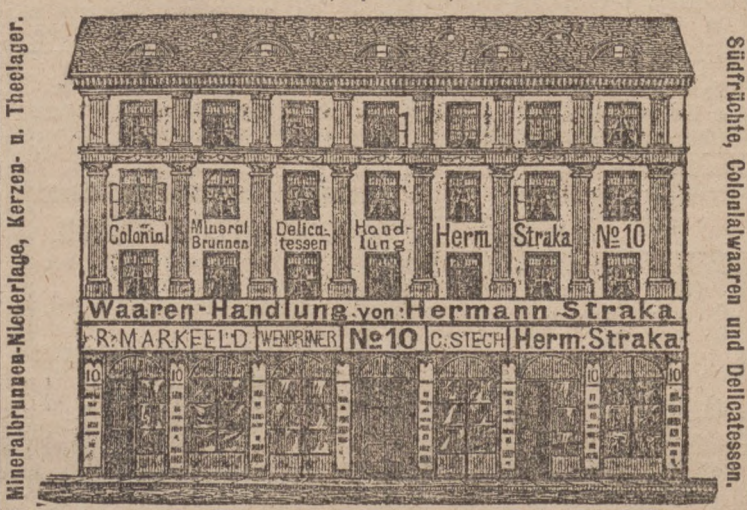 Mineralbrunnen-Niederlage, Kerzen- u. Theelager.
Colonial
Mineral
Brunnen
Delica-
tessen
Hand-
lung
Herm.
Straka
No 10
Waaren-Handlung von Hermann Straka
R. MARKFELD WENDRINER No 10 C. STECH Herm. Straka
10 10 10 10
Südfrüchte, Colonialwaaren und Delicatessen.